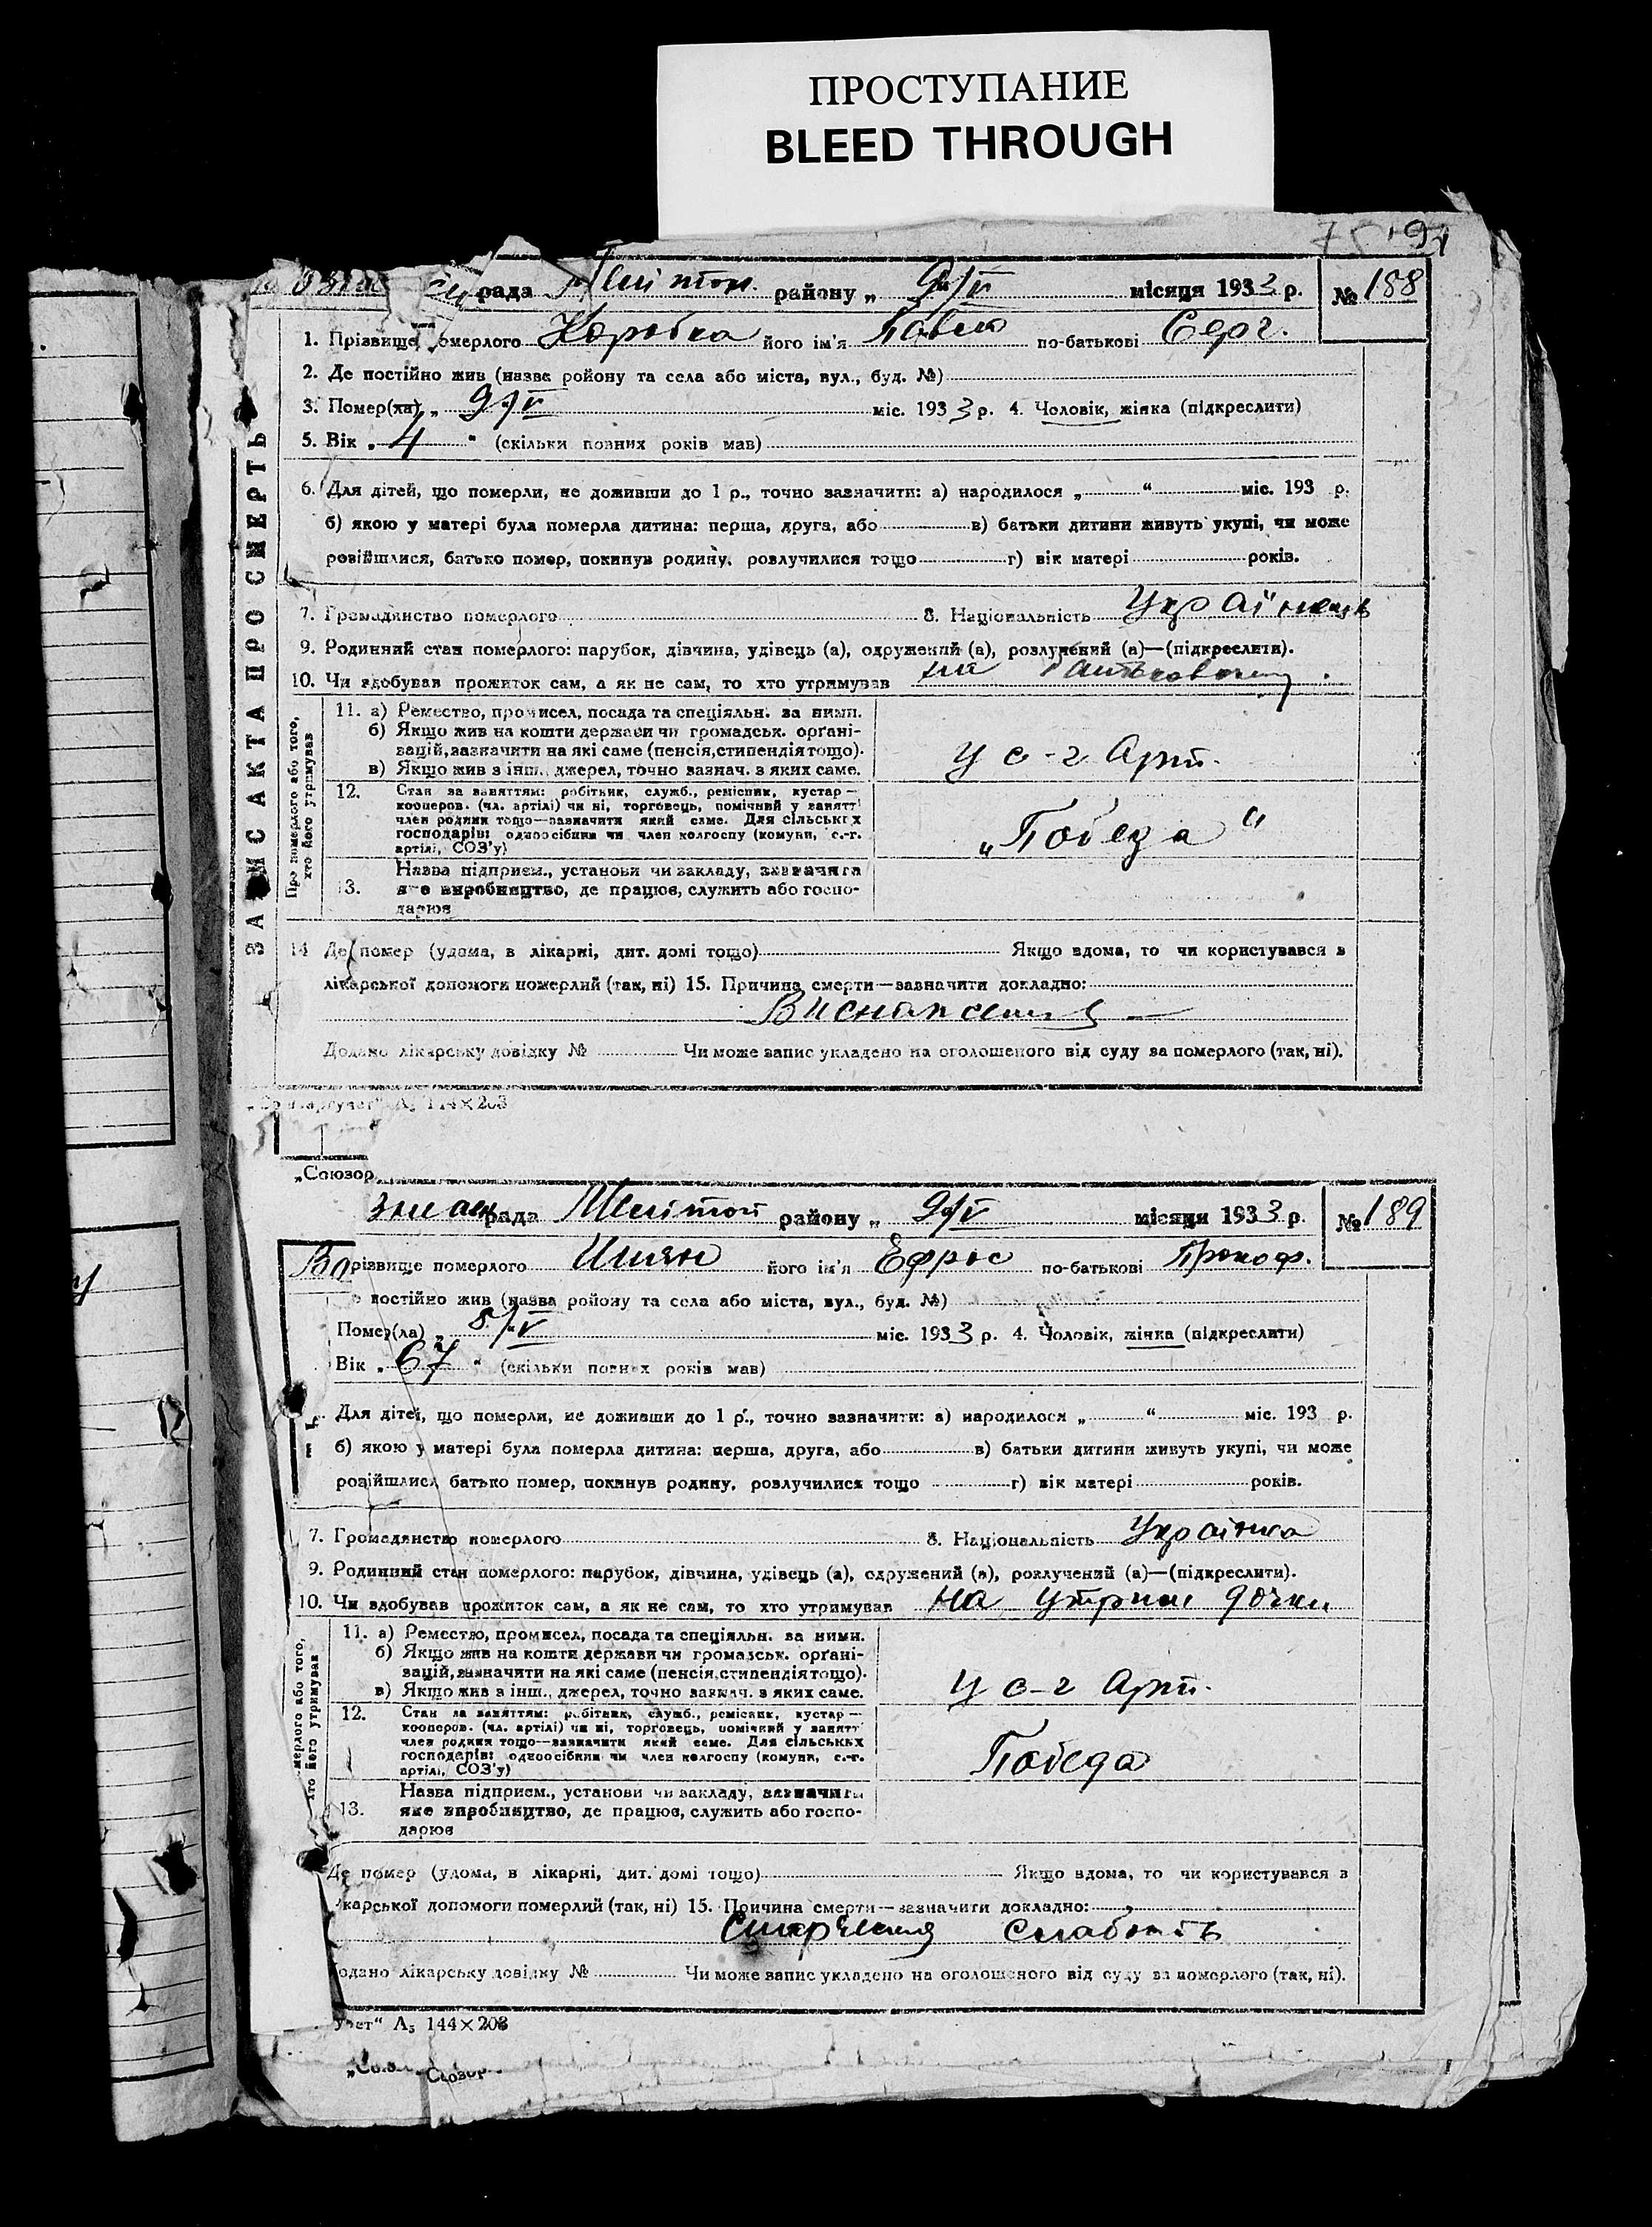 ПРОСТУПАНИЕ
BLEED THROUGH
рада район у „ 9/V місяця 1933 р. № 188
1. Прізвище померлого Коробка його ім'я Павло по-батькові Серг.
2. Де постійно жив (назва ройону та села або міста, вул., буд. №)
3. Помер(ла) „ 9/V міс. 1933 р. 4. Чоловік, жінка (підкреслити)
5. Вік „ 4 " (скільки повних років мав)
ЗАПИС АКТА ПРО СМЕРТЬ
6. Для дітей, що померли, не доживши до 1 р., точно зазначити: а) народилося „ “ міс. 193 р.
б) якою у матері була померла дитина: перша, друга, або в) батьки дитини живуть укупі, чи може
розійшлися, батько помер, покинув родину, розлучилися тощо г) вік матері років.
7. Громадянство померлого 8. Національність Українець
9. Родинний стан померлого: парубок, дівчина, удівець (а), одружений (а), розлучений (а)—(підкреслити).
10. Чи здобував прожиток сам, а як не сам, то хто утримував на
Про померлого або того, хто його утримував
11. а) Ремество, промисел, посада та спеціяльн. за ними.
б) Якщо жив на кошти держави чи громадськ. орґані-
зацій, зазначити на які саме (пенсія, стипендія тощо).
в) Якщо жив з інш. джерел, точно зазнач. з яких саме.
у с-г Арт.
12. Стан за заняттям: робітник, служб., ремісник, кустар—
кооперов. (чл. артілі) чи ні, торговець, помічний у занятті
член родини тощо—зазначити який саме. Для сільських
господарів: одноосібник чи член колгоспу (комуни, с.-г.
артілі, СОЗ'у)
„Победа“
13. Назва підприєм., установи чи закладу, зазначити
яке виробництво, де працює, служить або госпо-
дарює
14 Де помер (удома, в лікарні, дит. домі тощо) Якщо вдома, то чи користувався з
лікарської допомоги померлий (так, ні) 15. Причина смерти—зазначити докладно:
Виснаження
Додано лікарську довідку № Чи може запис укладено на оголошеного від суду за померлого (так, ні).
А₅ 144×203
„Союзор
рада Мелітоп район у „ 9/V місяця 1933 р. № 189
Во різвище померлого Ишян його ім'я Ефрос по-батькові Прокоф.
постійно жив (назва ройону та села або міста, вул., буд. №)
Помер(ла) „ 8/V міс. 1933 р. 4. Чоловік, жінка (підкреслити)
Вік „ 67 " (скільки повних років мав)
Для дітей, що померли, не доживши до 1 р., точно зазначити: а) народилося „ “ міс. 193 р.
б) якою у матері була померла дитина: перша, друга, або в) батьки дитини живуть укупі, чи може
розійшлися батько помер, покинув родину, розлучилися тощо г) вік матері років.
7. Громадянство померлого 8. Національність Українка
9. Родинний стан померлого: парубок, дівчина, удівець (а), одружений (а), розлучений (а)—(підкреслити).
10. Чи здобував прожиток сам, а як не сам, то хто утримував на утрим дочки
мерлого або того, хто його утримував
11. а) Ремество, промисел, посада та спеціяльн. за ними.
б) Якщо жив на кошти держави чи громадськ. орґані-
зацій, зазначити на які саме (пенсія, стипендія тощо).
в) Якщо жив з інш., джерел, точно зазнач. з яких саме.
у с-г Арт.
12. Стан за заняттям: робітник, служб., ремісник, кустар—
кооперов. (чл. артілі) чи ні, торговець, помічний у занятті
член родини тощо—зазначити який саме. Для сільських
господарів: одноосібник чи член колгоспу (комуни, с.-г.
артілі, СОЗ'у)
Победа
13. Назва підприєм., установи чи закладу, зазначити
яке виробництво, де працює, служить або госпо-
дарює
Де помер (удома, в лікарні, дит. домі тощо) Якщо вдома, то чи користувався з
карської допомоги померлий (так, ні) 15. Причина смерти—зазначити докладно:
Старческая слабость
одано лікарську довідку № Чи може запис укладено на оголошеного від суду за померлого (так, ні).
учет“ А₅ 144×203